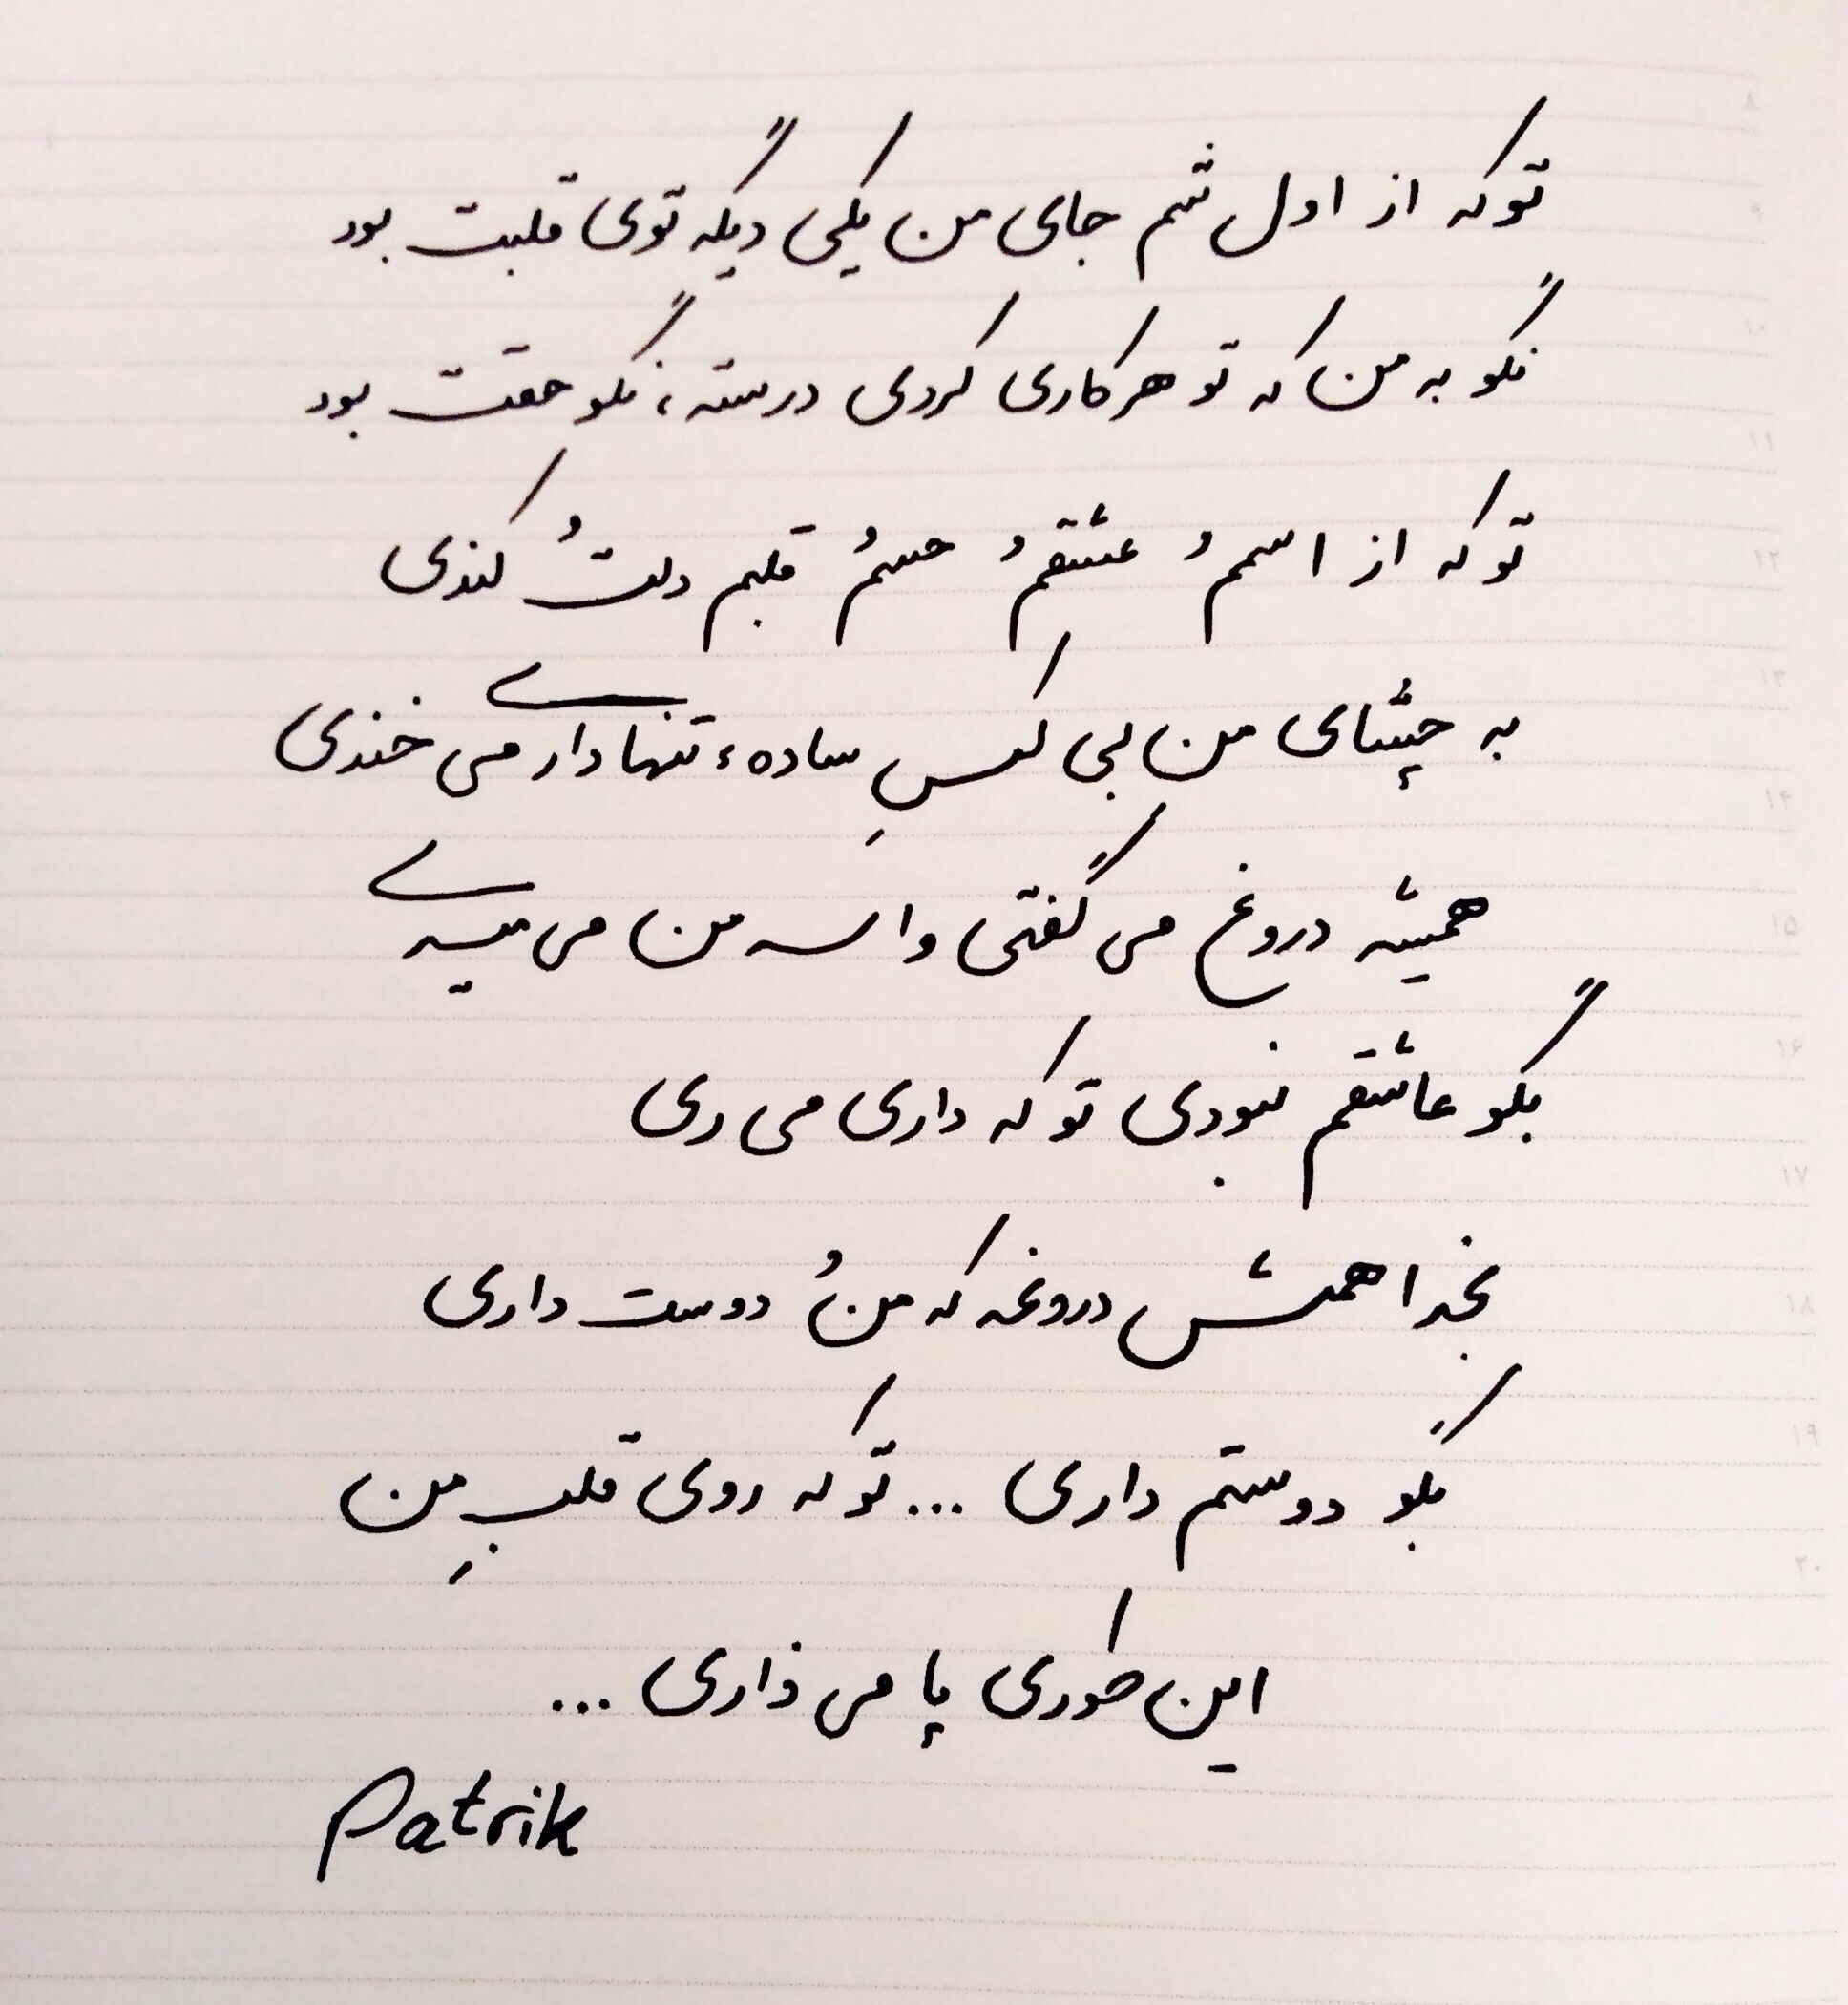 تو که از اول شم جای من یکی دیگه توی قلبت بود
نگو به من که تو هر کاری کردی درسته، نگو حقت بود
تو که از اسمم ُ عشقم ُ حسمُ قلبم دلتُ کندی
به چشای من بی کسِ ساده، تنها داری می خندی
همیشه دروغ می گفتی واسه من می میری
بگو عاشقم نبودی تو که داری می ری
بخدا همش دروغه که منُ دوست داری
بگو دوستم داری ... تو که روی قلبِ من
این طوری پا می ذاری ...
Patrik